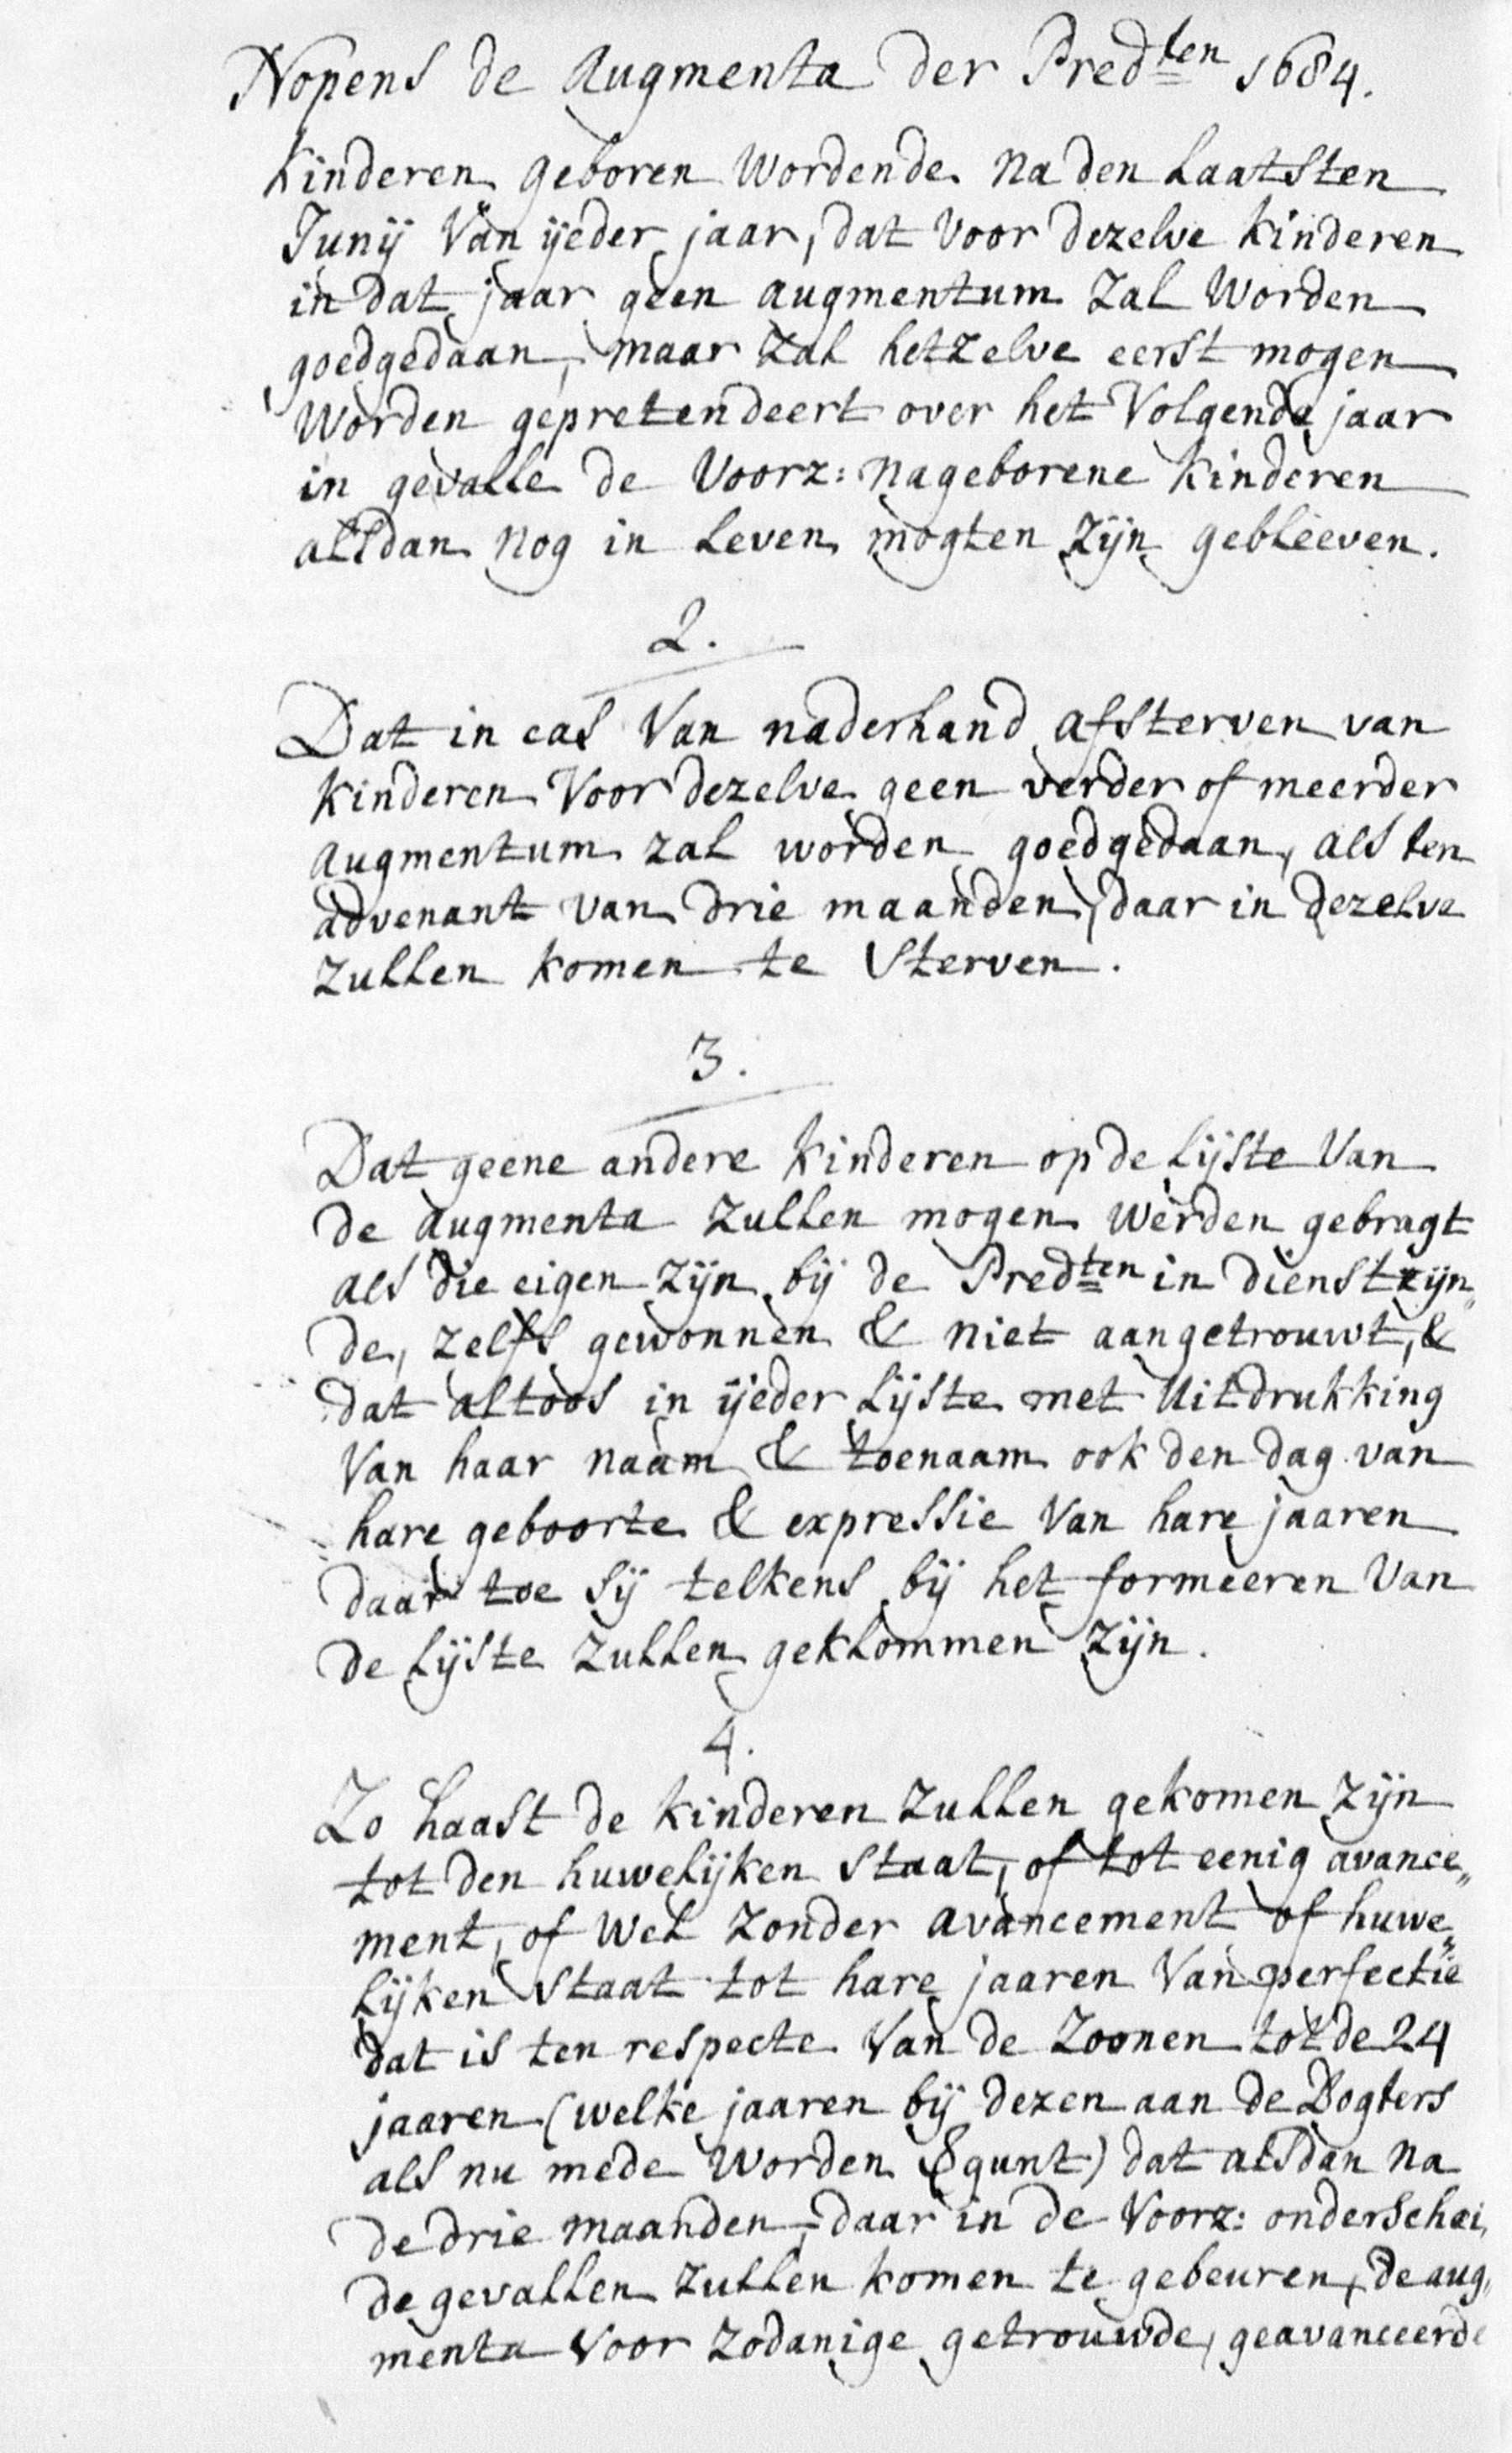 Nopens de Augmenta der Pred^ten 1684.
Kinderen geboren wordende na den laatsten
Junij van ijeder jaar, dat voor dezelve kinderen
in dat jaar geen augmentum zal worden
goedgedaan, maar zal hetzelve eerst mogen
worden gepretendeert over het volgende jaar
in gevalle de voorz: nageborene kinderen
alsdan nog in leven mogten zijn gebleeven.
2.
Dat in cas van naderhand afsterven van
kinderen voor dezelve geen verder of meerder
augmentum zal worden goedgedaan, als ten
advenant van drie maanden, daar in dezelve
zullen komen te sterven.
3.
Dat geene andere kinderen op de lijste van
de augmenta zullen mogen werden gebragt
als die eigen zijn bij de Pred^ten in dienst zijn„
de, zelfs gewonnen & niet aangetrouwt, &
dat altoos in ijeder lijste met uitdrukking
van haar naam & toenaam ook den dag van
hare geboorte & expressie van hare jaaren
daar toe sij telkens bij het formeeren van
de lijste zullen geklommen zijn.
4.
Zo haast de kinderen zullen gekomen zijn
tot den huwelijken staat, of tot eenig avance„
ment, of wel zonder avancement of huwe„
lijken staat tot hare jaaren van perfectie
dat is ten respecte van de zoonen tot de 24
jaaren (welke jaaren bij dezen aan de Dogters
als nu mede worden gunt) dat alsdan na
de drie maanden, daar in de voorz: onderschei„
de gevallen zullen komen te gebeuren, de aug„
menta voor zodanige getrouwde, geavanceerde